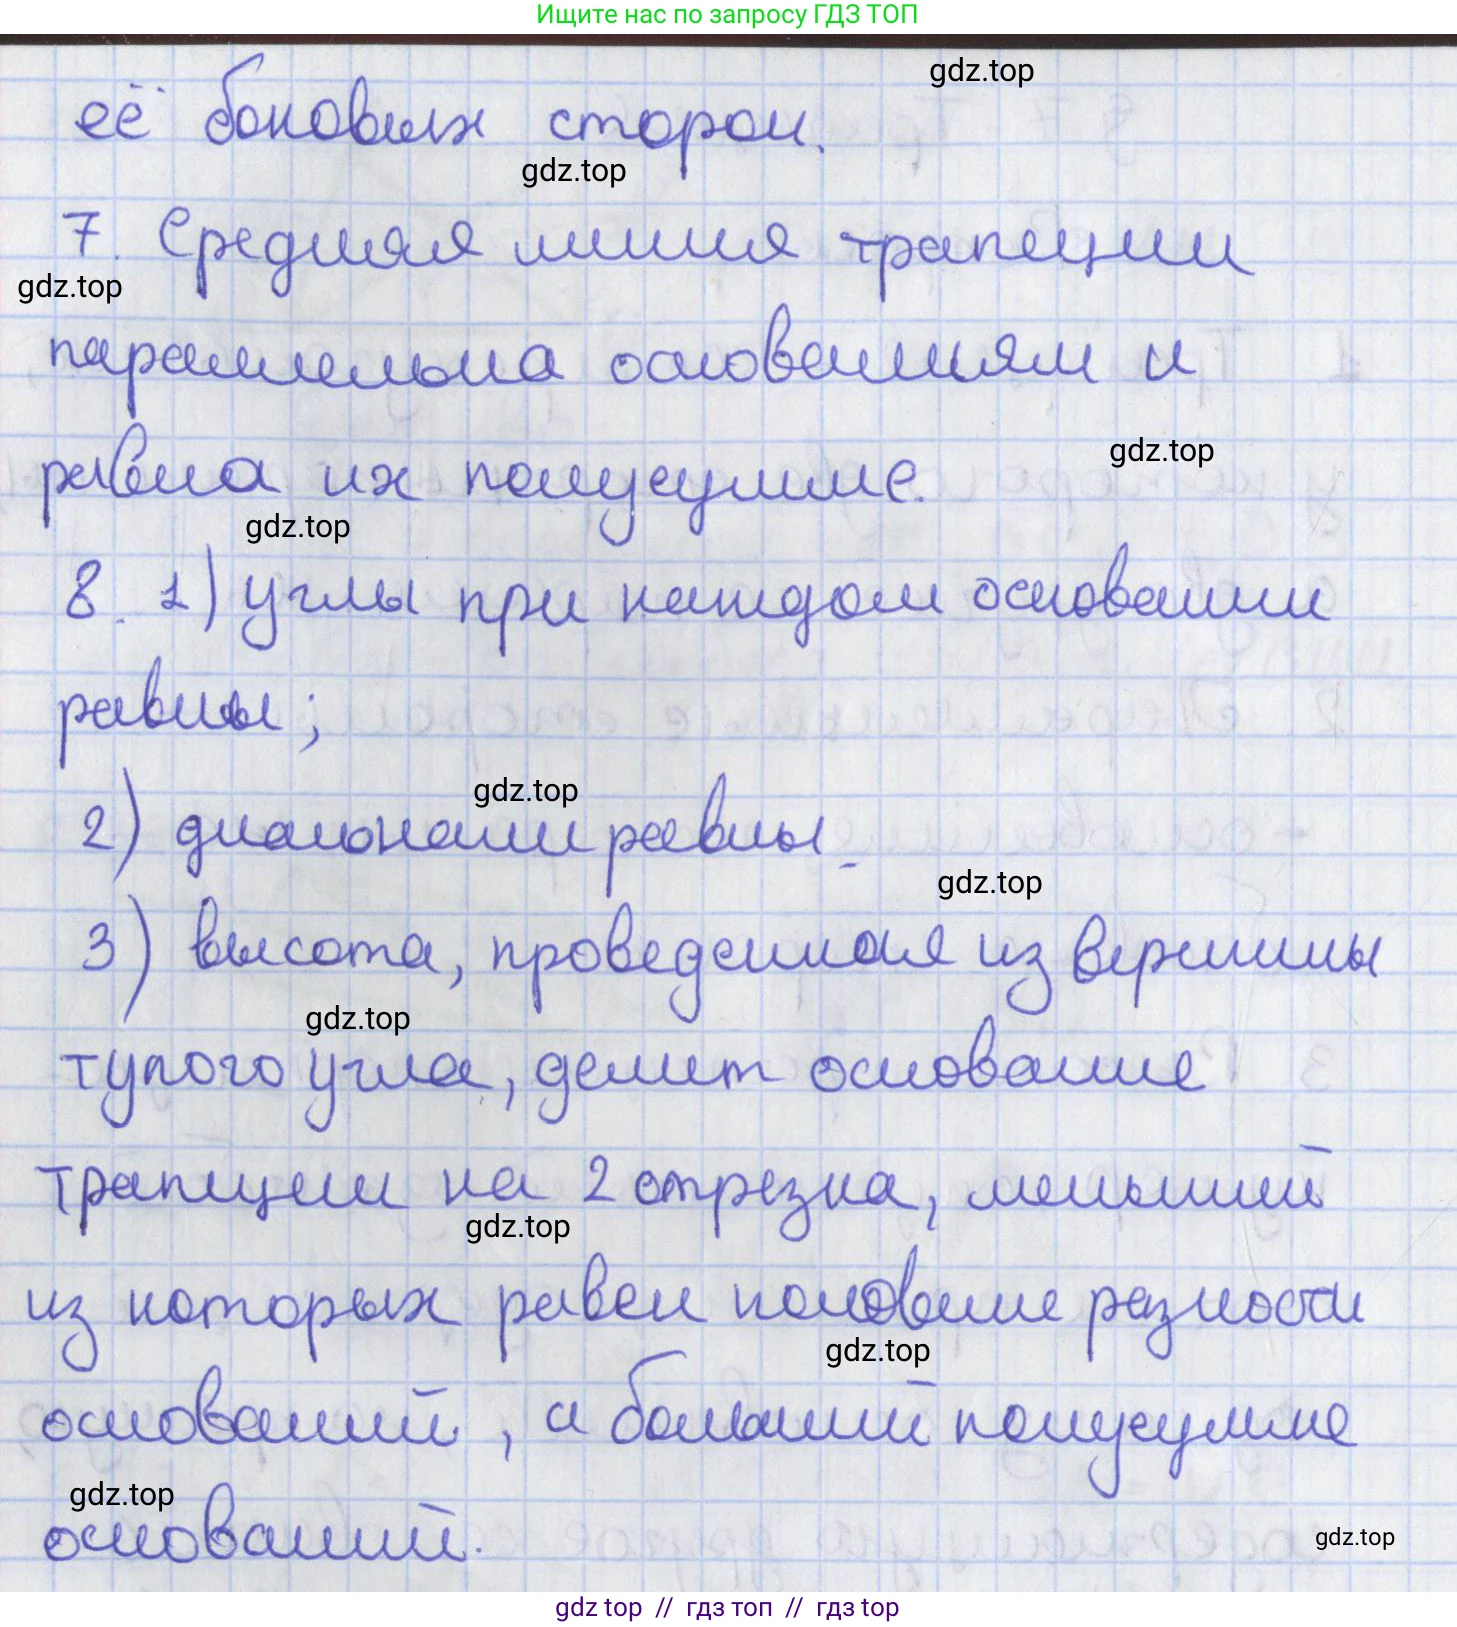 Ищите нас по запросу ГДЗ ТОП
gdz.top
её боковых сторон.
gdz.top
7. Средняя линия трапеции
gdz.top
параллельна основаниям и
gdz.top
равна их полусумме.
gdz.top
8. 1) углы при каждом основании
равны;
gdz.top
2) диагонали равны
gdz.top
3) высота, проведенная из вершины
gdz.top
тупого угла, делит основание
трапеции на 2 отрезка, меньший
gdz.top
из которых равен половине разности
gdz.top
оснований, а больший полусумме
gdz.top
оснований.
gdz.top
gdz top // гдз топ // гдз top